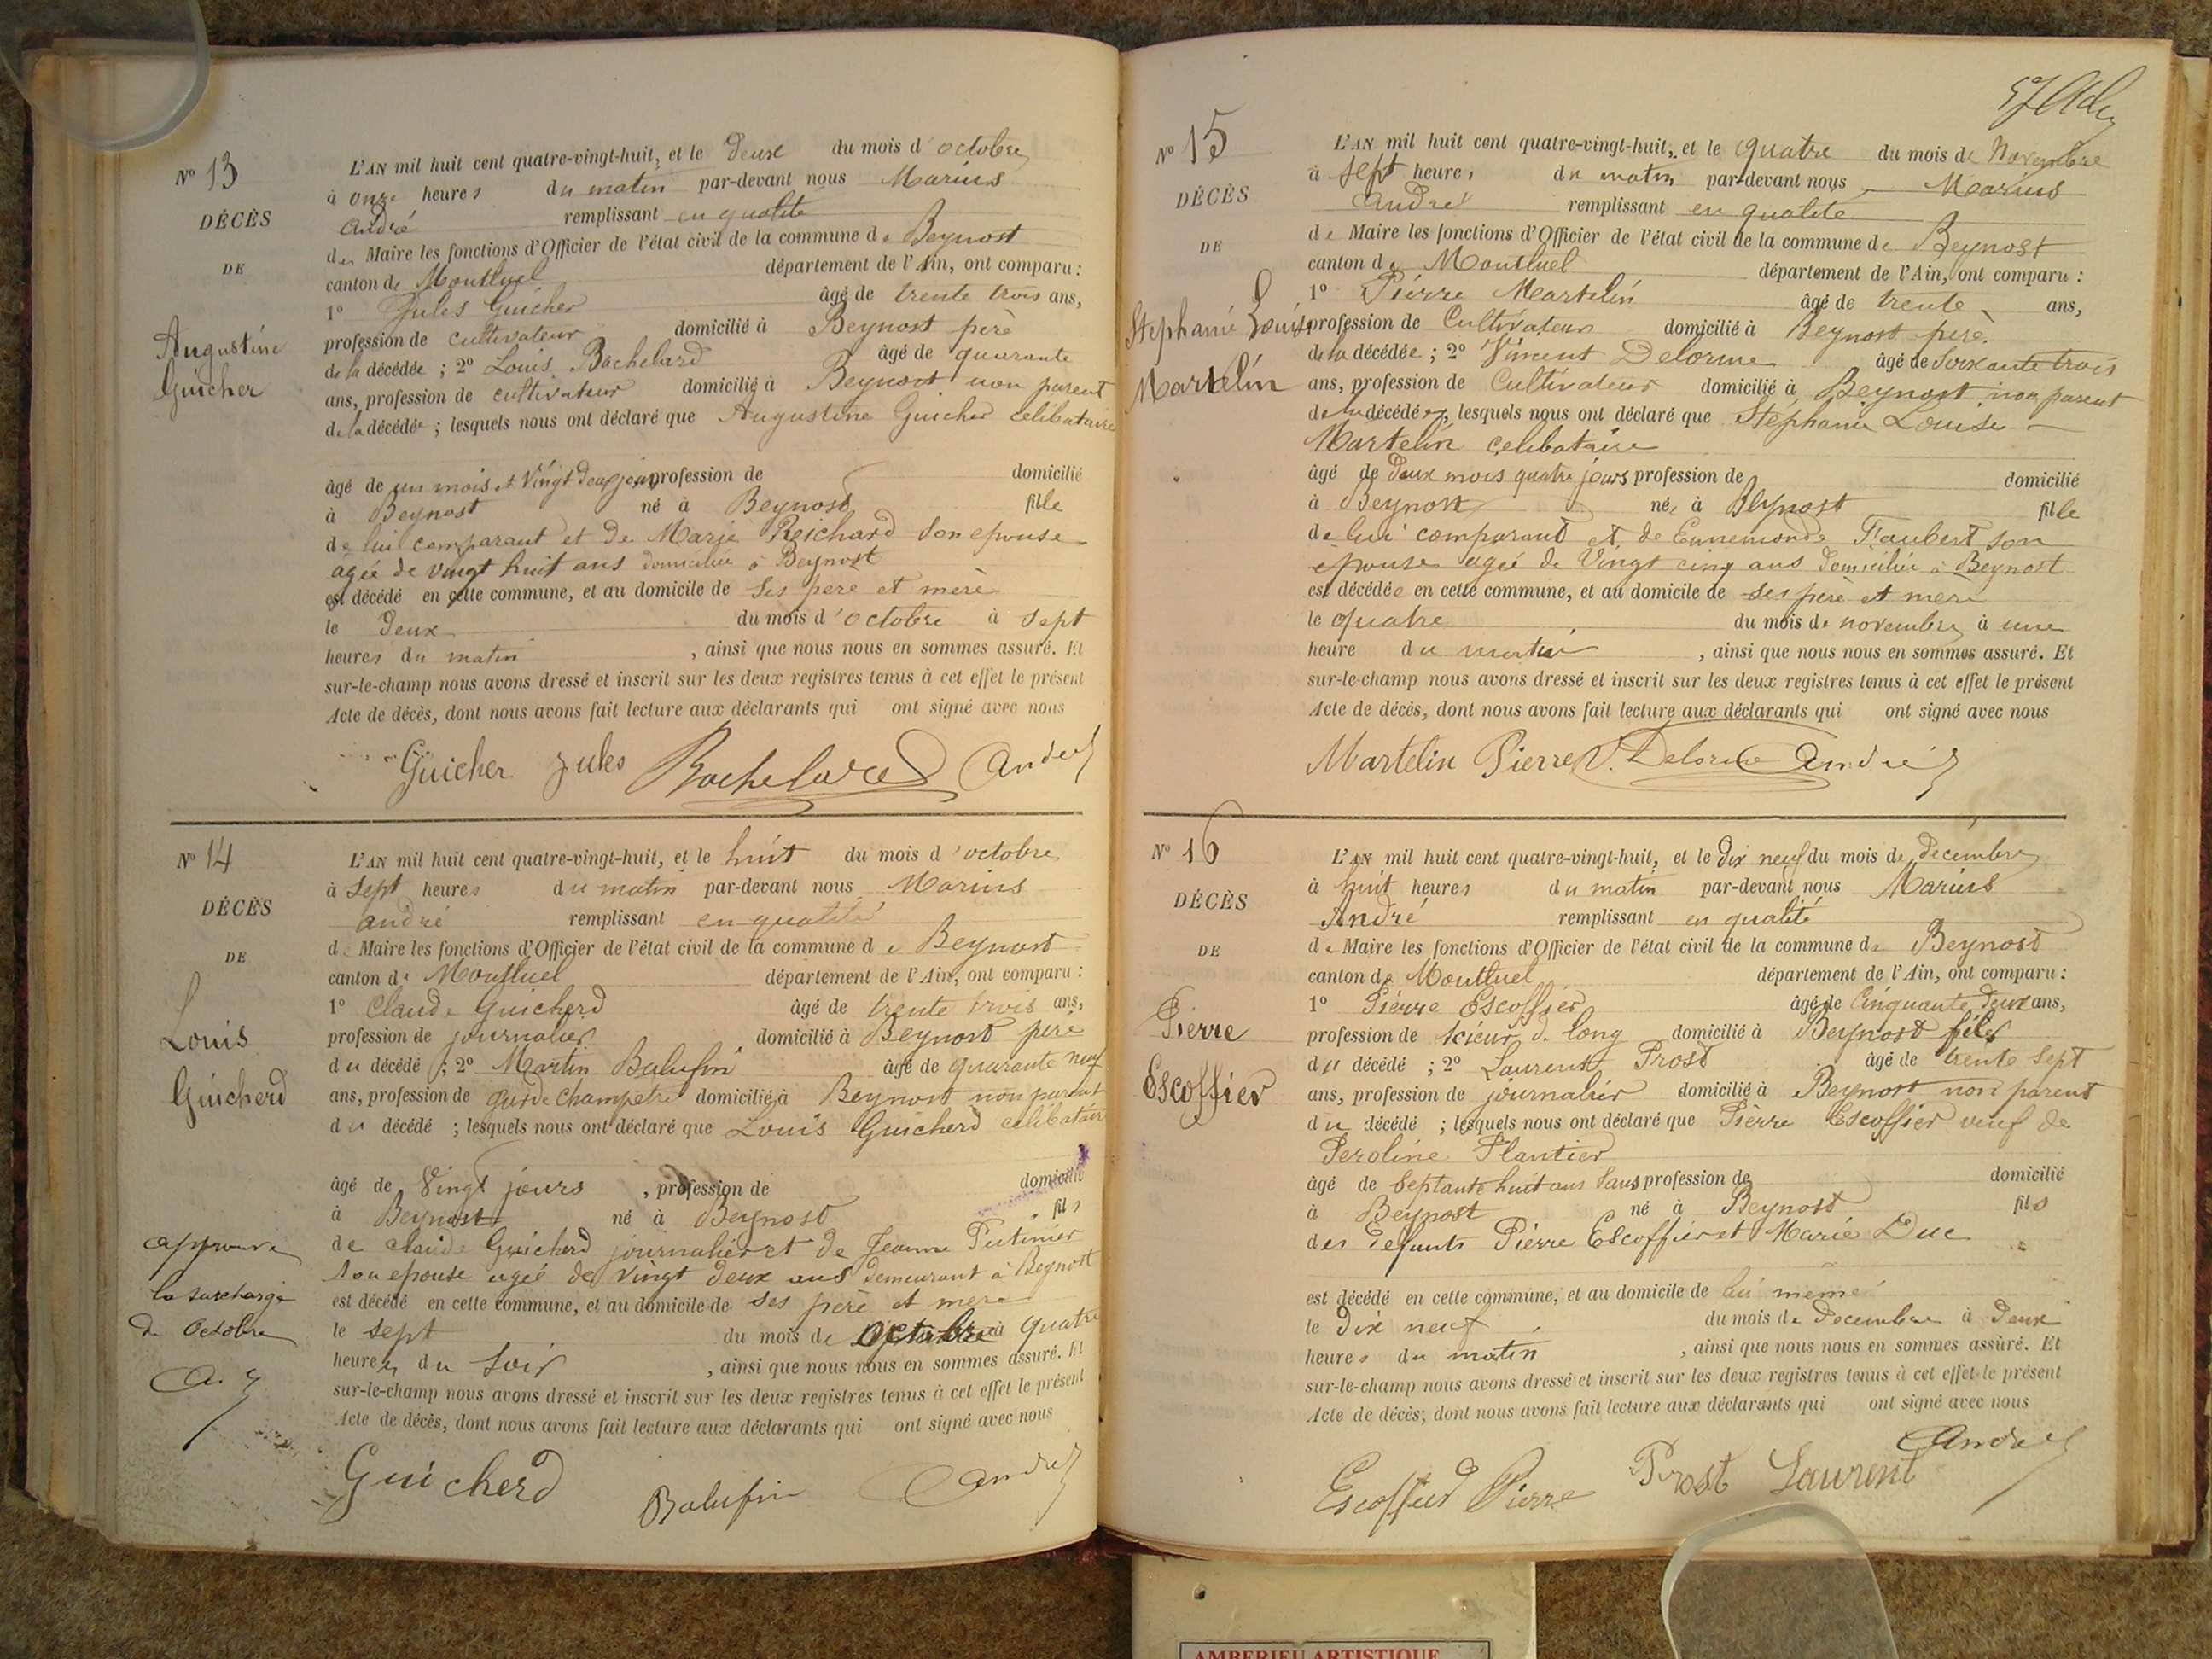 N° 13
DÉCÈS
DE
Augustine
Guicher
L'AN mil huit cent quatre-vingt-huit, et le deux du mois d'octobre
à onze heures du matin par-devant nous Marius
André remplissant en qualité
de Maire les fonctions d'Officier de l'état civil de la commune de Beynost
canton de Montluel département de l'Ain, ont comparu :
1° Jules Guicher âgé de trente trois ans,
profession de cultivateur domicilié à Beynost père
de la décédée ; 2° Louis Bachelard âgé de quarante
ans, profession de cultivateur domicilié à Beynost non parent
de la décédée ; lesquels nous ont déclaré que Augustine Guicher célibataire
âgé de un mois et vingt deux jours profession de domicilié
à Beynost né à Beynost fille
de lui comparant et de Marie Reichard son epouse
agée de vingt huit ans domiciliée à Beynost
est décédé en cette commune, et au domicile de ses père et mère
le deux du mois d'octobre à sept
heures du matin , ainsi que nous nous en sommes assuré. Et
sur-le-champ nous avons dressé et inscrit sur les deux registres tenus à cet effet le présent
Acte de décès, dont nous avons fait lecture aux déclarants qui ont signé avec nous
Guicher Jules Bachelard André
N° 14
DÉCÈS
DE
Louis
Guicherd
L'AN mil huit cent quatre-vingt-huit, et le huit du mois d'octobre
à sept heures du matin par-devant nous Marius
André remplissant en qualité
de Maire les fonctions d'Officier de l'état civil de la commune de Beynost
canton de Montluel département de l'Ain, ont comparu :
1° Claude Guicherd âgé de trente trois ans,
profession de journalier domicilié à Beynost père
du décédé ; 2° Martin Balufin âgé de quarante neuf
ans, profession de garde champetre domicilié à Beynost non parent
du décédé ; lesquels nous ont déclaré que Louis Guicherd célibataire
âgé de Vingt jours , profession de domicilié
à Beynost né à Beynost fils
de Claude Guicherd journalier et de Jeanne Putinier
son epouse agée de vingt deux ans demeurant à Beynost
est décédé en cette commune, et au domicile de ses père et mere
le sept du mois de octobre à quatre
heures du soir , ainsi que nous nous en sommes assuré. Et
sur-le-champ nous avons dressé et inscrit sur les deux registres tenus à cet effet le présent
Acte de décès, dont nous avons fait lecture aux déclarants qui ont signé avec nous
approuvé
la surcharge
de Octobre
Guicherd Balufin André
N° 15
DÉCÈS
DE
Stephanie Louise
Martelin
L'AN mil huit cent quatre-vingt-huit, et le quatre du mois de Novembre
à sept heures du matin par-devant nous Marius
André remplissant en qualité
de Maire les fonctions d'Officier de l'état civil de la commune de Beynost
canton de Montluel département de l'Ain, ont comparu :
1° Pierre Martelin âgé de trente ans,
profession de Cultivateur domicilié à Beynost père
de la décédée ; 2° Vincent Delorme âgé de soixante trois
ans, profession de Cultivateur domicilié à Beynost non parent
de la décédée, lesquels nous ont déclaré que Stephanie Louise
Martelin celibataire
âgé de deux mois quatre jours profession de domicilié
à Beynost née à Beynost fille
de lui comparant et de Ennemonde Faubert son
epouse agée de Vingt cinq ans domiciliée à Beynost
est décédée en cette commune, et au domicile de ses père et mere
le quatre du mois de novembre à une
heure du matin , ainsi que nous nous en sommes assuré. Et
sur-le-champ nous avons dressé et inscrit sur les deux registres tenus à cet effet le présent
Acte de décès, dont nous avons fait lecture aux déclarants qui ont signé avec nous
Martelin Pierre V. Delorme André
N° 16
DÉCÈS
DE
Pierre
Escoffier
L'AN mil huit cent quatre-vingt-huit, et le dix neuf du mois de décembre
à huit heures du matin par-devant nous Marius
André remplissant en qualité
de Maire les fonctions d'Officier de l'état civil de la commune de Beynost
canton de Montluel département de l'Ain, ont comparu :
1° Pierre Escoffier âgé de Cinquante deux ans,
profession de scieur de long domicilié à Beynost fils
du décédé ; 2° Laurent Prost âgé de trente sept
ans, profession de journalier domicilié à Beynost non parent
du décédé ; lesquels nous ont déclaré que Pierre Escoffier veuf de
Peroline Plantier
âgé de septante huit ans sans profession de domicilié
à Beynost né à Beynost fils
des défunts Pierre Escoffier et Marie Duc
est décédé en cette commune, et au domicile de lui même
le dix neuf du mois de Decembre à deux
heures du matin , ainsi que nous nous en sommes assuré. Et
sur-le-champ nous avons dressé et inscrit sur les deux registres tenus à cet effet le présent
Acte de décès, dont nous avons fait lecture aux déclarants qui ont signé avec nous
André
Escoffier Pierre Prost Laurent
AMBERIEU ARTISTIQUE